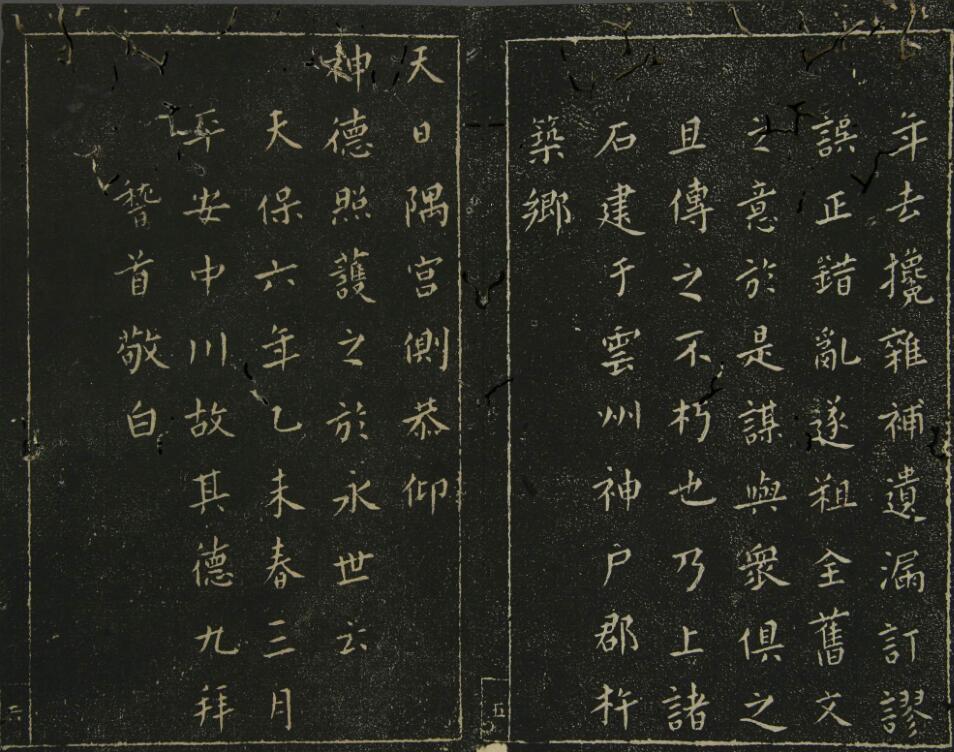 年去攙雜補遺漏訂謬
誤正錯亂遂粗全舊文
之意於是謀與衆俱之
且傳之不朽也乃上諸
石建于雲州神戸郡杵
築鄉
天日隅宮側恭仰
神德照護之於永世云
天保六年乙未春三月
平安中川故其德九拜
稽首敬白
五